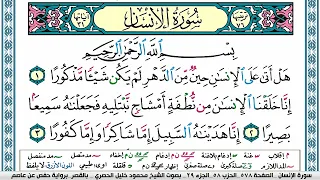 سُورَةُ الْإِنسَانِ
بِسْمِ اللَّهِ الرَّحْمَٰنِ الرَّحِيمِ
هَلْ أَتَىٰ عَلَى الْإِنسَانِ حِينٌ مِّنَ الدَّهْرِ لَمْ يَكُن شَيْئًا مَّذْكُورًا ١
إِنَّا خَلَقْنَا الْإِنسَانَ مِن نُّطْفَةٍ أَمْشَاجٍ نَّبْتَلِيهِ فَجَعَلْنَاهُ سَمِيعًا
بَصِيرًا ٢ إِنَّا هَدَيْنَاهُ السَّبِيلَ إِمَّا شَاكِرًا وَإِمَّا كَفُورًا ٣
سورة الإنسان - الصفحة ٥٧٨ - الجزء ٢٩ - بصوت الشيخ محمود خليل الحصري - بالقصر - برواية حفص عن عاصم